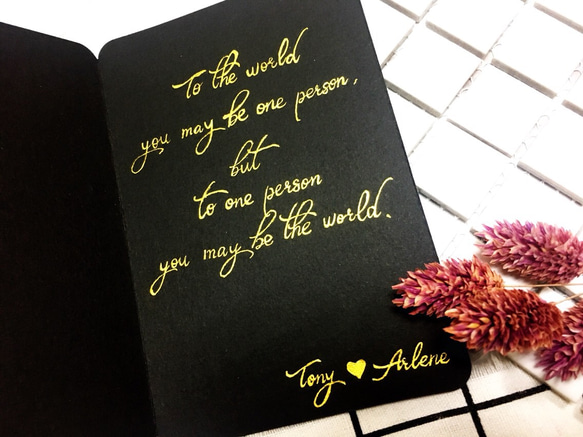 To the world
you may be one person,
but
to one person
you may be the world.
Tony ♥ Arlene